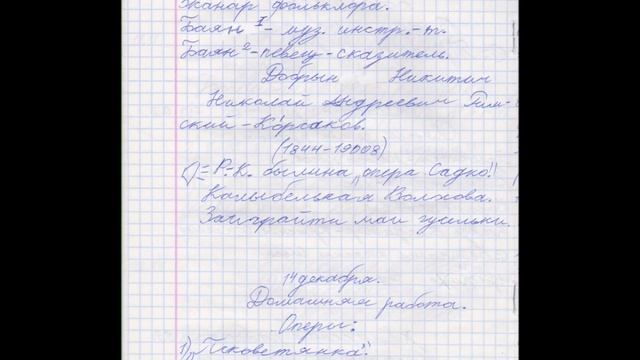 жанар фольклора.
Баян 1 - муз. инстр.-т.
Баян 2 - певец-сказитель.
Добрын Никитич
Николай Андреевич Рим-
ский-Корсаков.
(1844-19008)
= Р.-К. былина "опера Садко!!
Колыбелькая Волхова.
Заиграйти маи гусельки.
14 декабря.
Домашняя работа.
Оперы:
1) "Псковетянка".